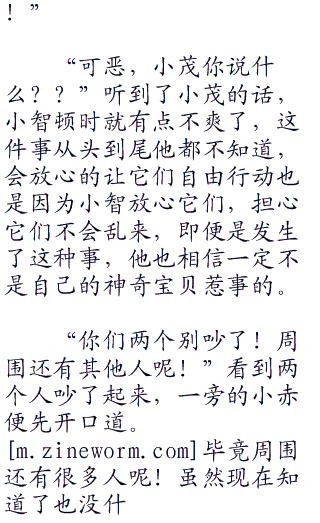 ！”
“可恶，小茂你说什
么？？”听到了小茂的话，
小智顿时就有点不爽了，这
件事从头到尾他都不知道，
会放心的让它们自由行动也
是因为小智放心它们，担心
它们不会乱来，即便是发生
了这种事，他也相信一定不
是自己的神奇宝贝惹事的。
“你们两个别吵了！周
围还有其他人呢！”看到两
个人吵了起来，一旁的小赤
便先开口道。
[m.zineworm.com]毕竟周围
还有很多人呢！虽然现在知
道了也没什